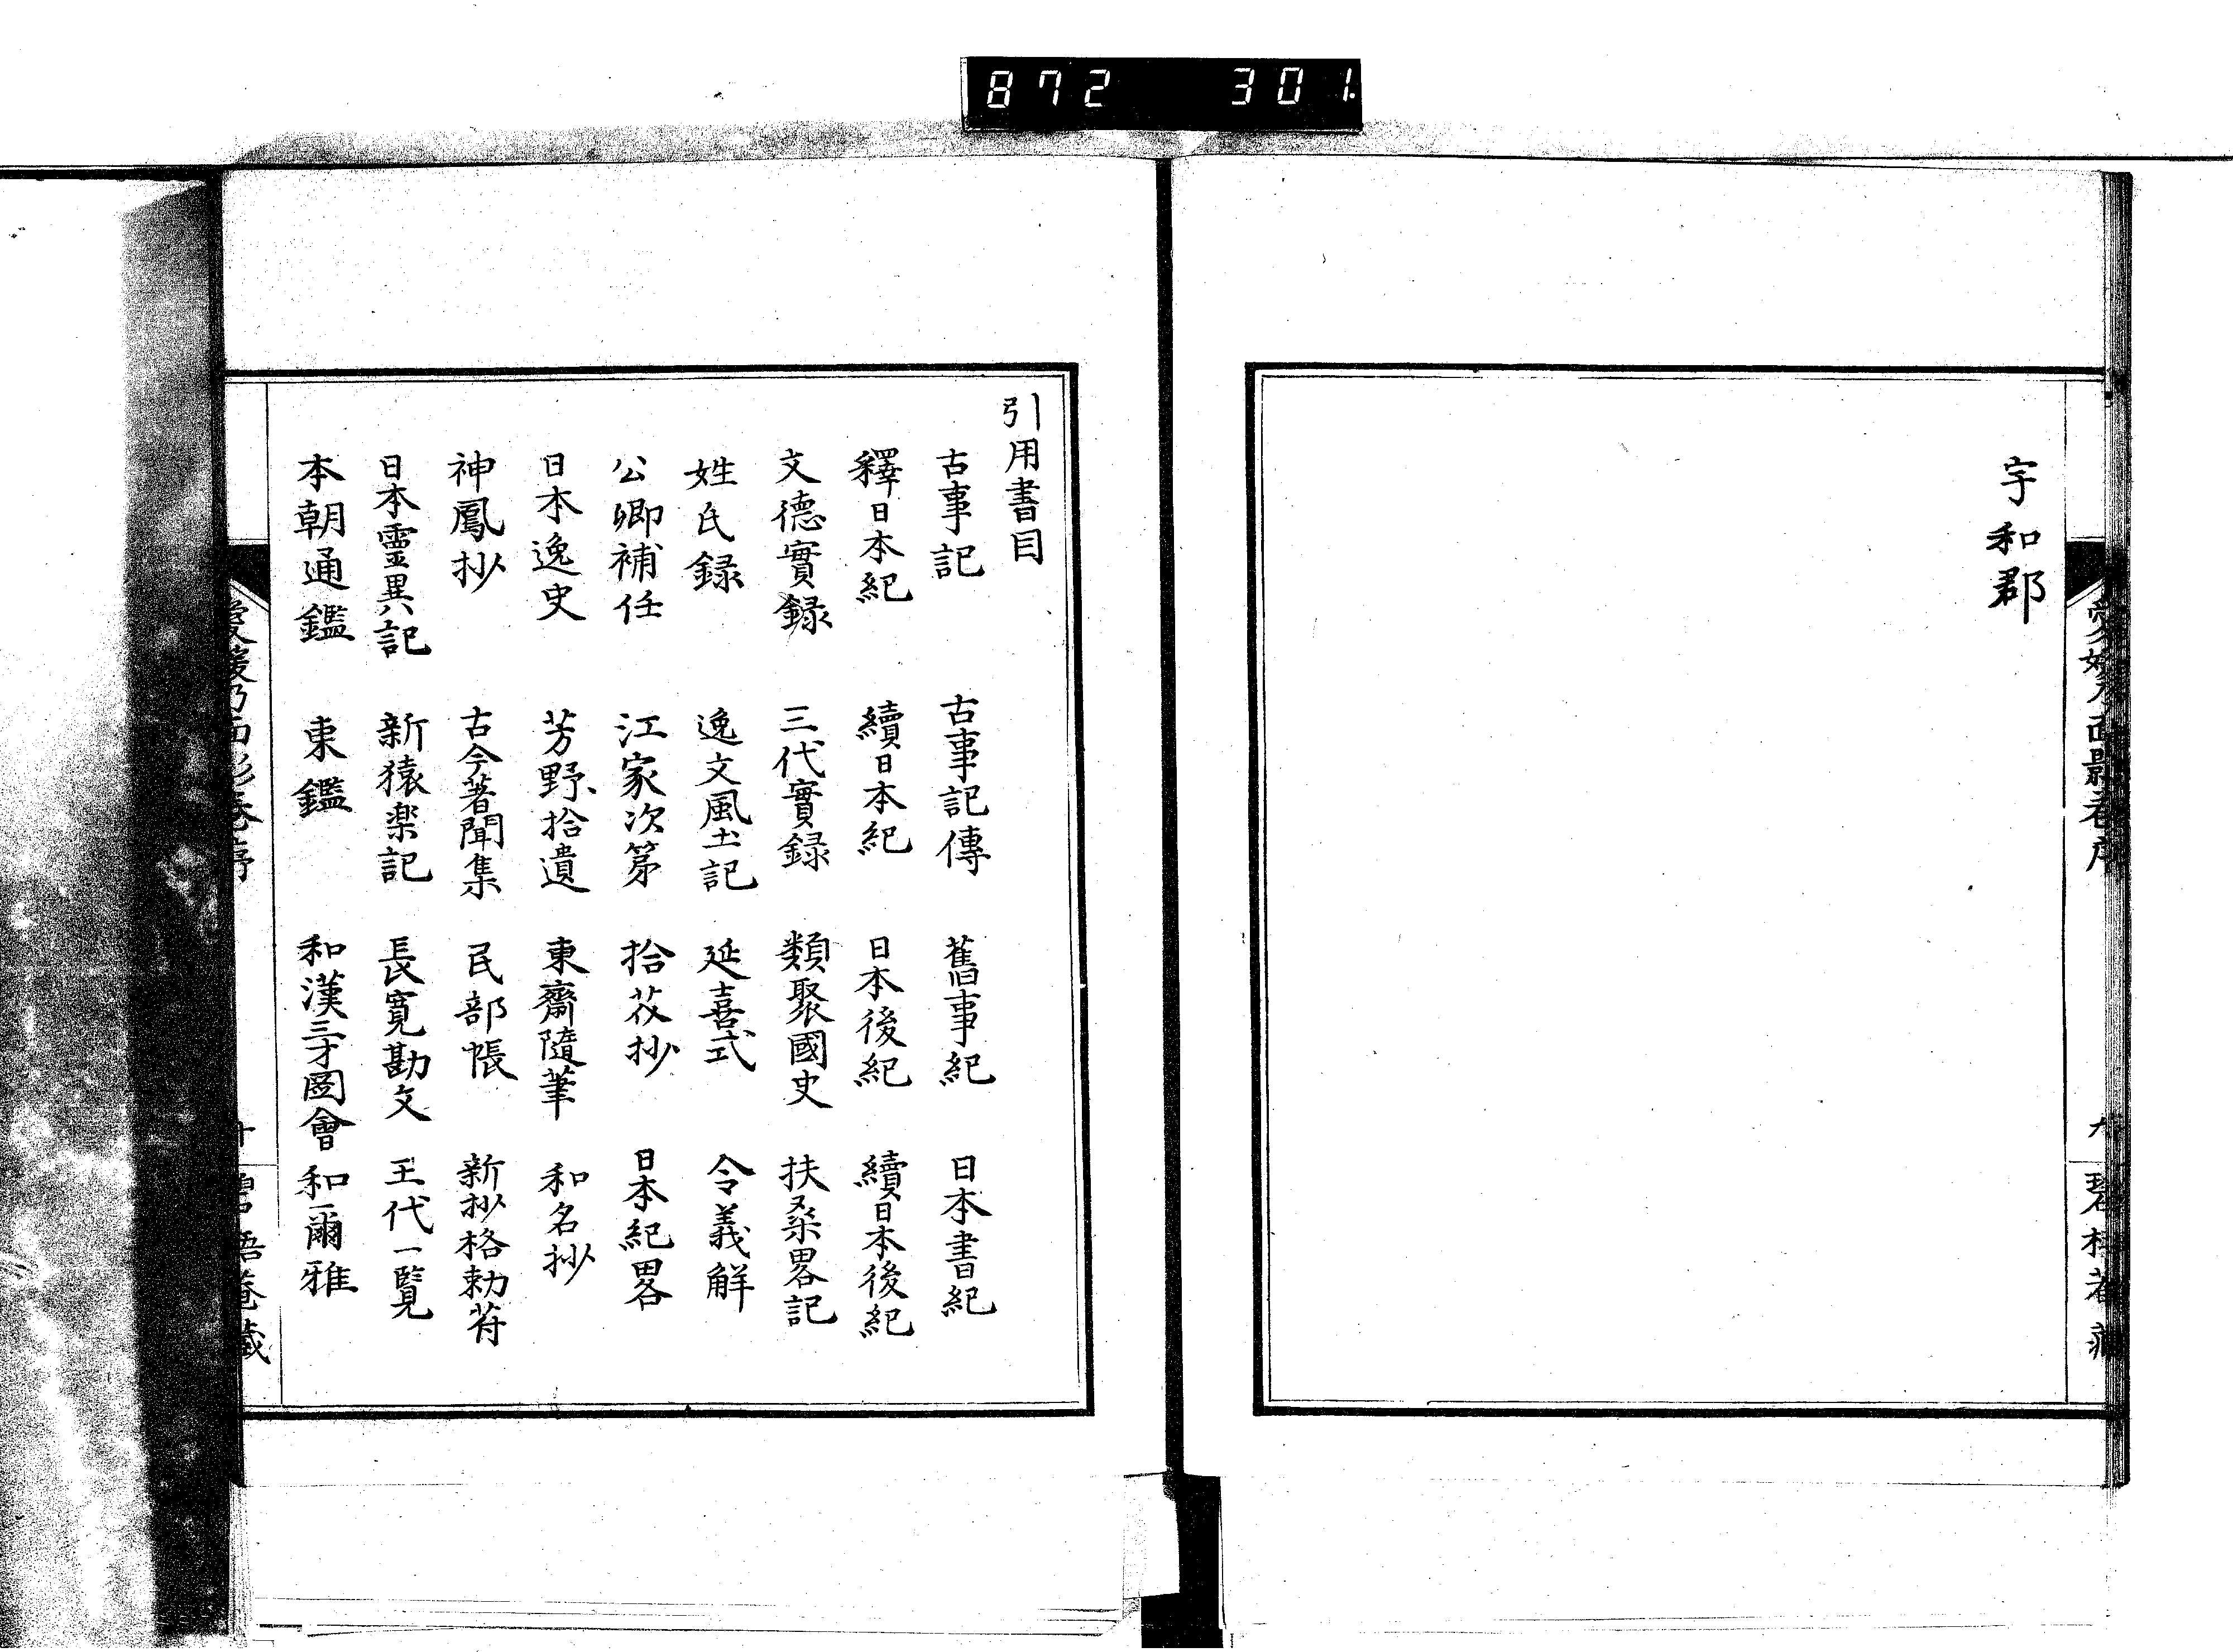 872 301
宇和郡
引用書目
古事記 古事記傳 舊事紀 日本書紀
釋日本紀 續日本紀 日本後紀 續日本後紀
文德實録 三代實録 類聚國史 扶桑畧記
姓氏録 逸文風土記 延喜式 令義解
公卿補任 江家次第 拾芥抄 日本紀畧
日本逸史 芳野拾遺 東齋隨筆 和名抄
神鳳抄 古今著聞集 民部帳 新抄格勅符
日本靈異記 新猿楽記 長寛勘文 王代一覧
本朝通鑑 東鑑 和漢三才圖會 和爾雅